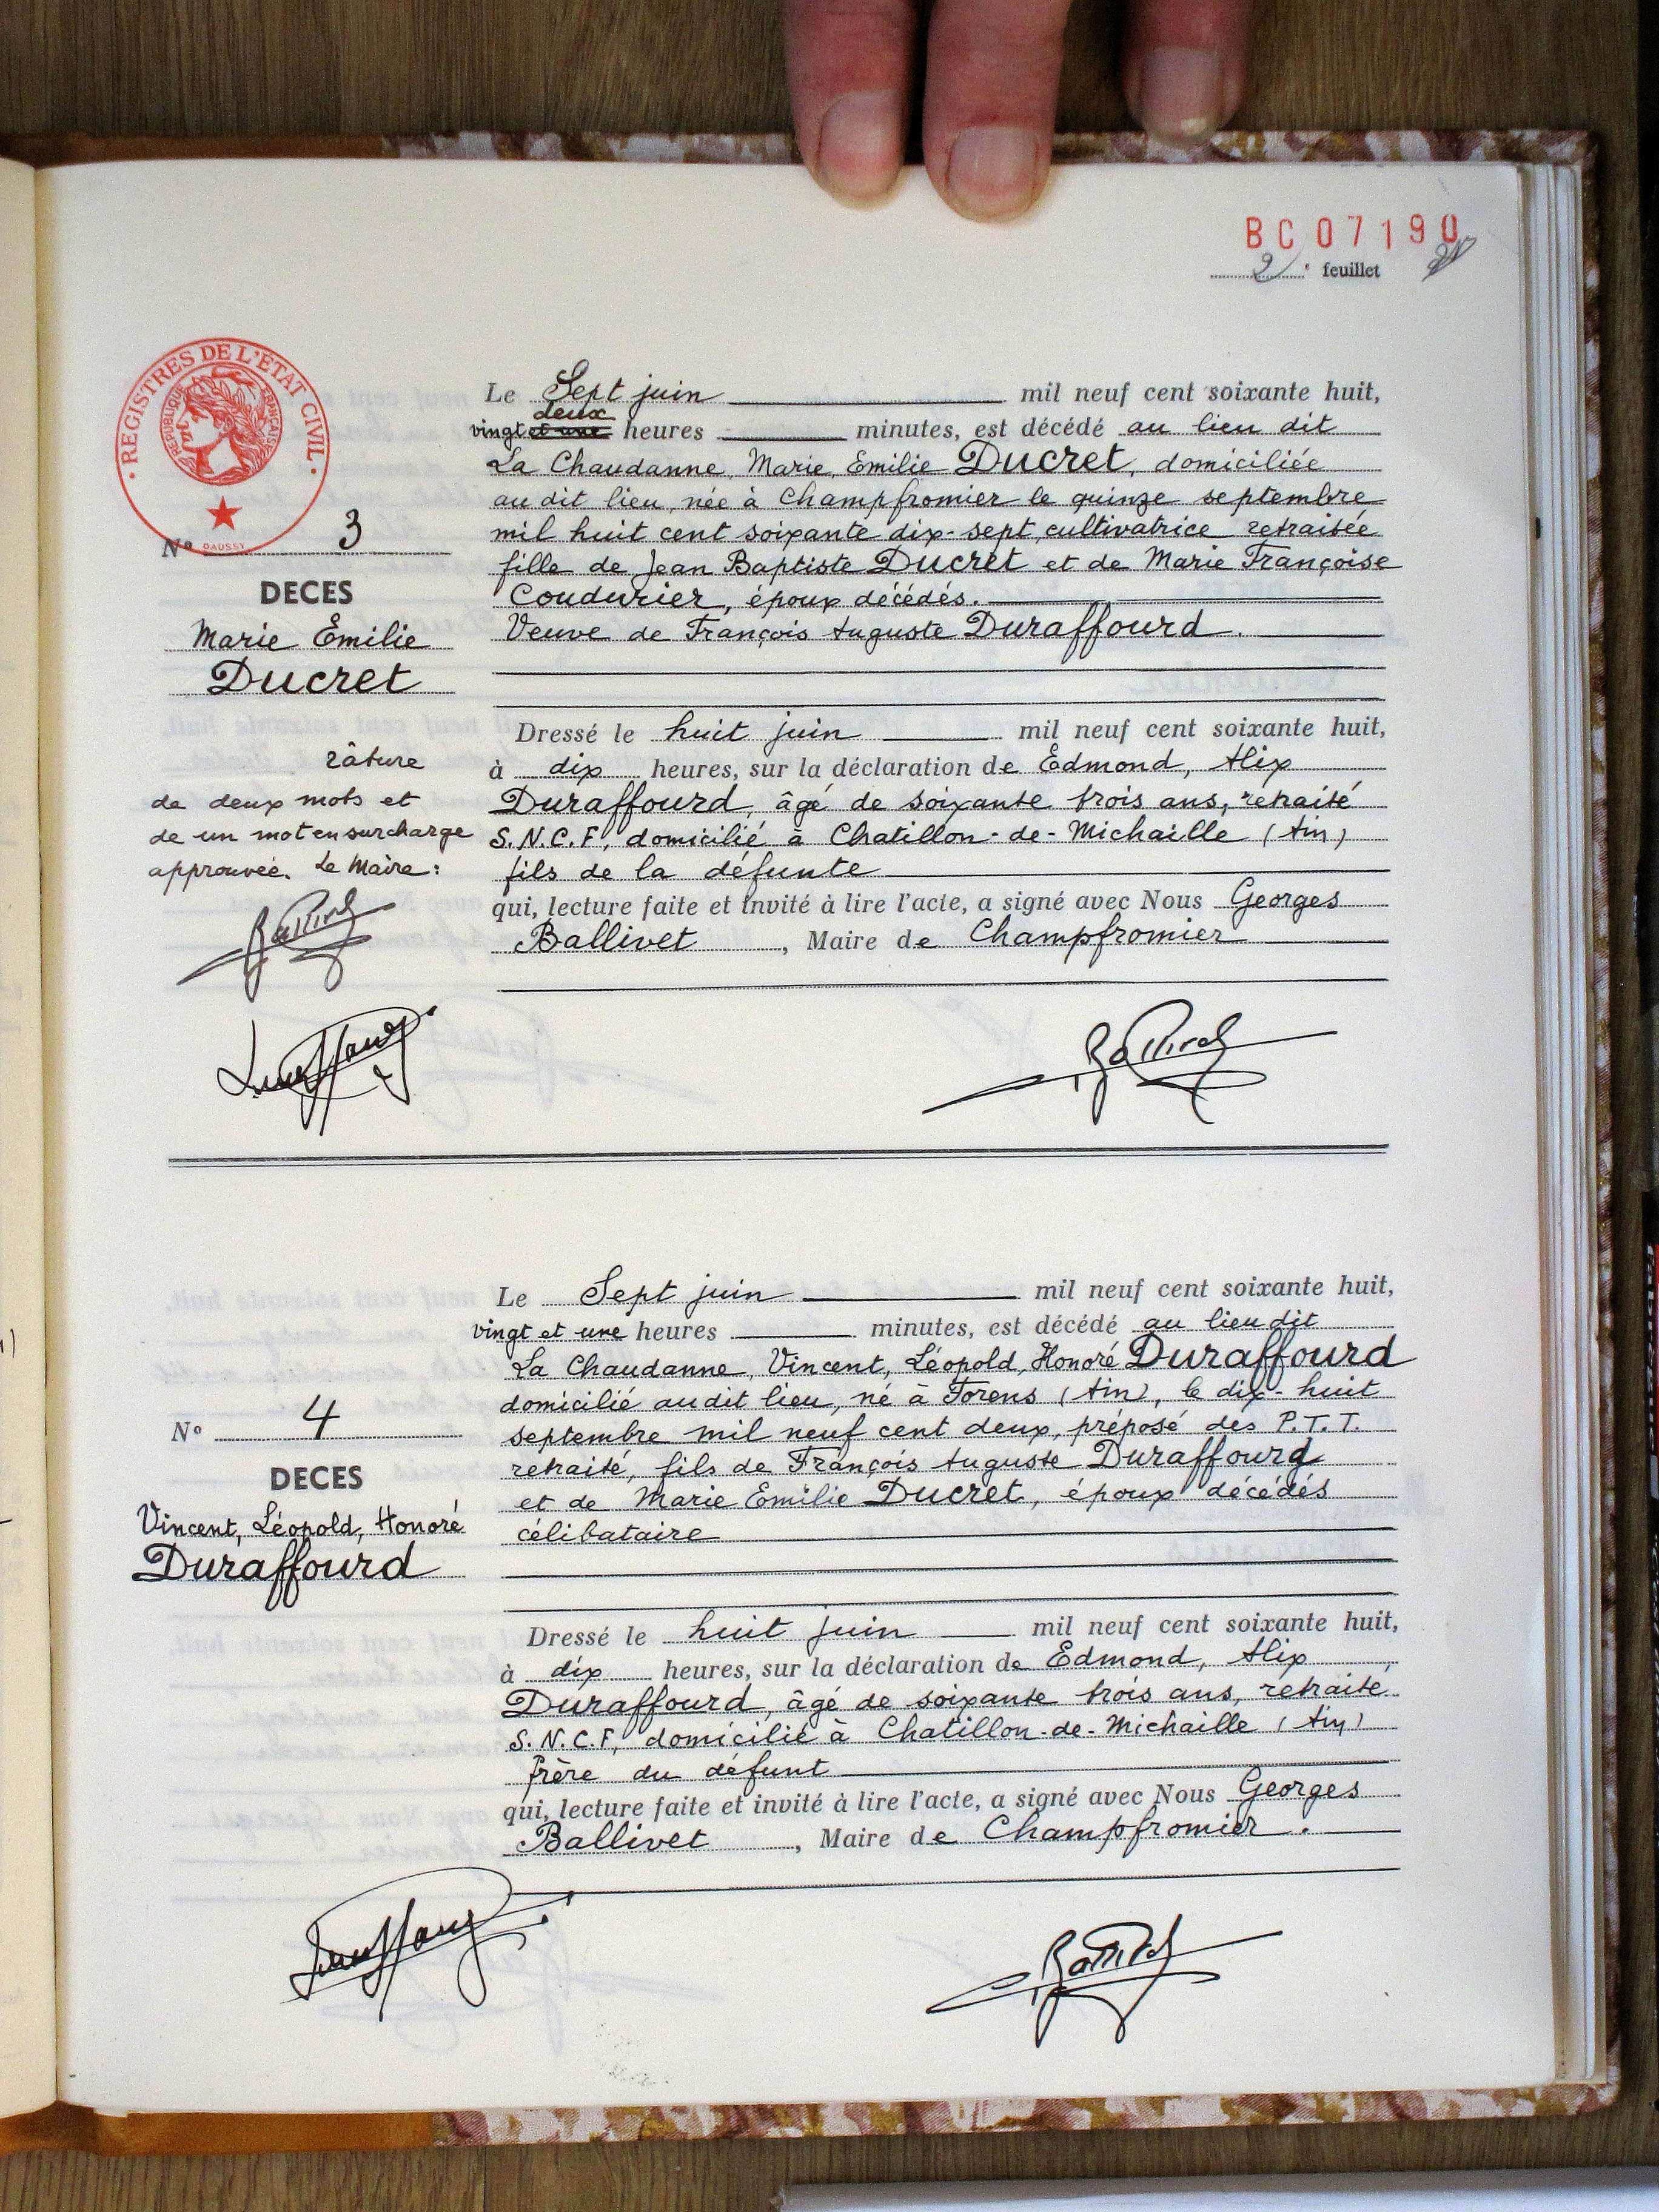 BC07190
2e feuillet
REGISTRES DE L'ÉTAT CIVIL
RÉPUBLIQUE FRANÇAISE
DAUSSY
Le Sept juin mil neuf cent soixante huit,
deux
vingt et une heures minutes, est décédé au lieu dit
La Chaudanne, Marie, Emilie Ducret, domiciliée
au dit lieu, née à Champfromier le quinze septembre
mil huit cent soixante dix-sept, cultivatrice retraitée
fille de Jean Baptiste Ducret et de Marie Françoise
Coudurier, époux décédés.
Veuve de François Auguste Duraffourd.
N° 3
DECES
Marie Emilie
Ducret
râture
de deux mots et
de un mot en surcharge
approuvée. Le Maire:
Dressé le huit juin mil neuf cent soixante huit,
à dix heures, sur la déclaration de Edmond, Alix
Duraffourd, âgé de soixante trois ans, retraité
S.N.C.F, domicilié à Chatillon-de-Michaille (Ain)
fils de la défunte
qui, lecture faite et invité à lire l'acte, a signé avec Nous Georges
Ballivet, Maire de Champfromier
Le Sept juin mil neuf cent soixante huit,
vingt et une heures minutes, est décédé au lieu dit
La Chaudanne, Vincent, Léopold, Honoré Duraffourd
domicilié au dit lieu, né à Forens (Ain), le dix-huit
septembre mil neuf cent deux, préposé des P.T.T.
retraité, fils de François Auguste Duraffourd
et de Marie Emilie Ducret, époux décédés
célibataire
N° 4
DECES
Vincent, Léopold, Honoré
Duraffourd
Dressé le huit juin mil neuf cent soixante huit,
à dix heures, sur la déclaration de Edmond, Alix
Duraffourd, âgé de soixante trois ans, retraité
S.N.C.F, domicilié à Chatillon-de-Michaille (Ain)
frère du défunt
qui, lecture faite et invité à lire l'acte, a signé avec Nous Georges
Ballivet, Maire de Champfromier.